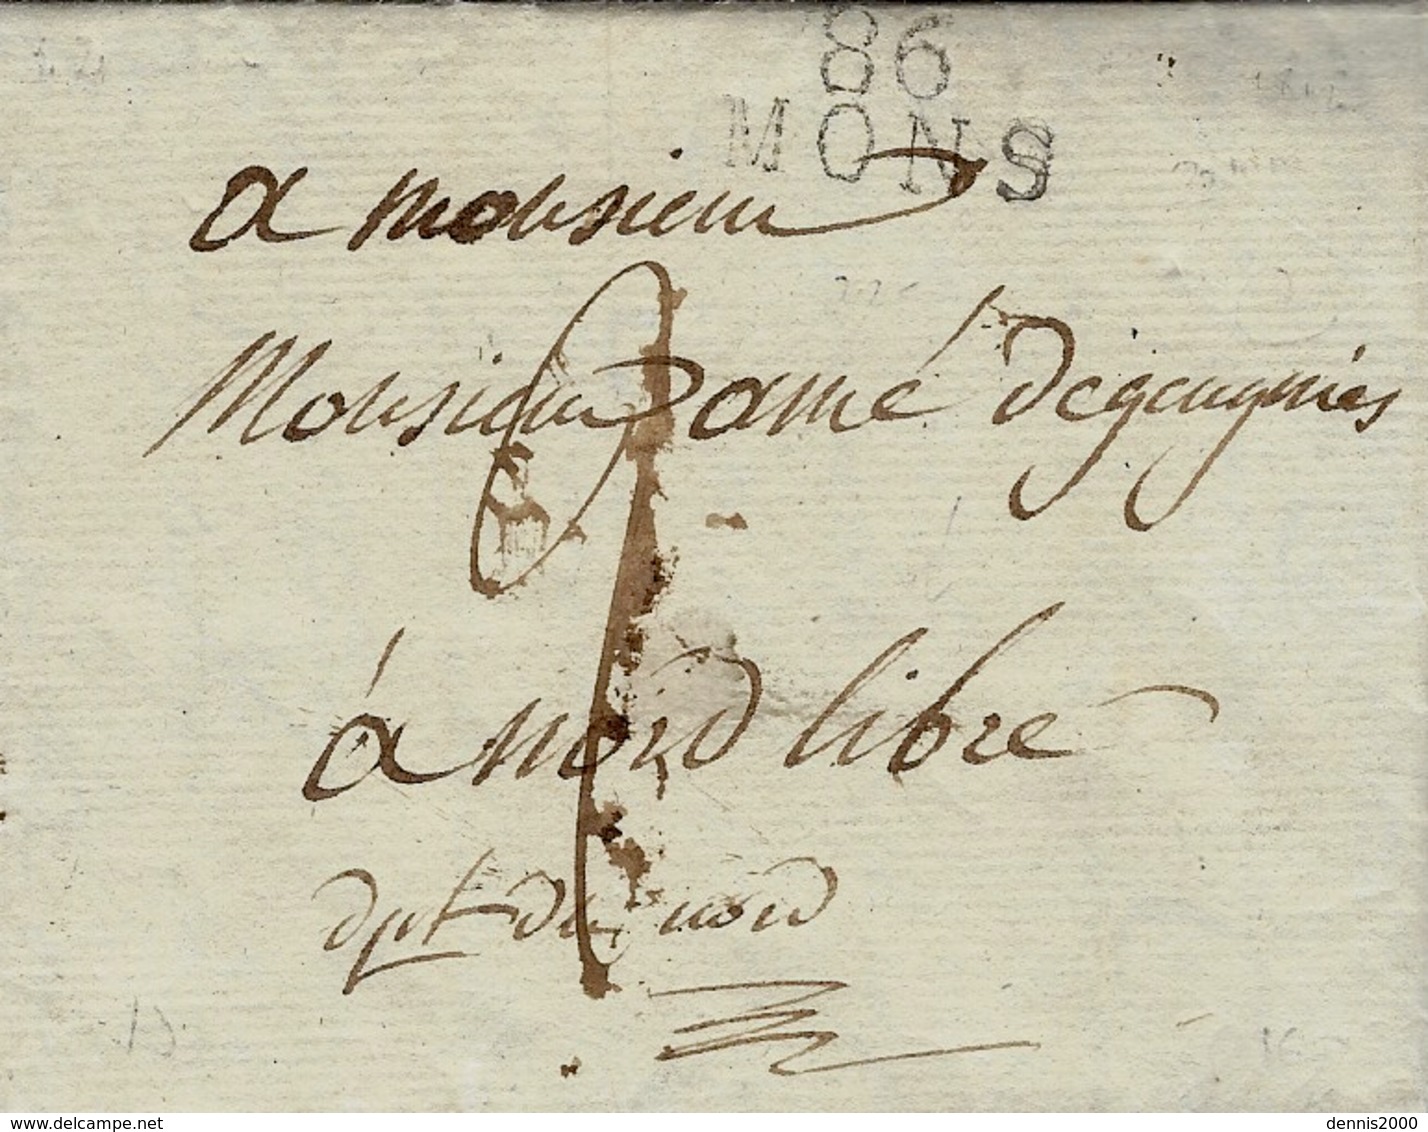 86
MONS
a monsieur
Monsieur amé Degeugnies
2
à nord libre
dpt du nord
delcampe.net
dennis2000